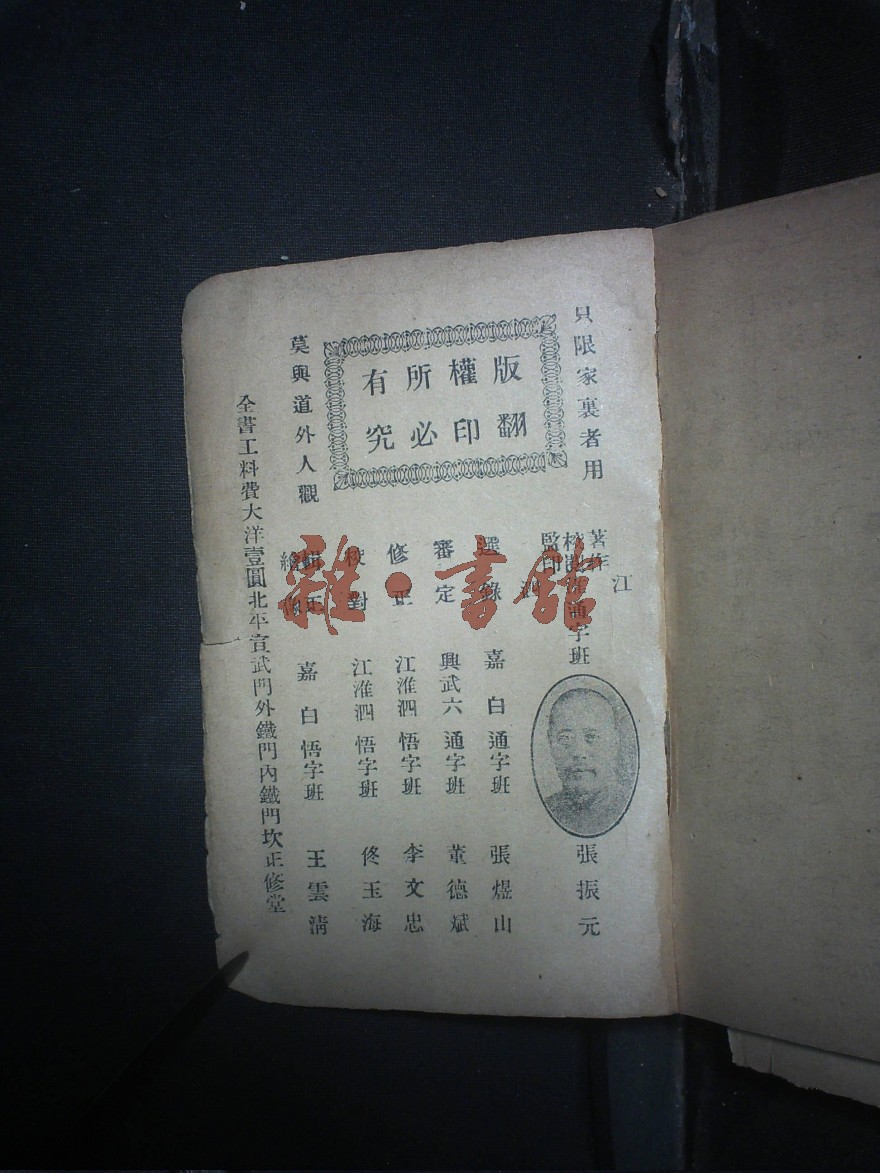 只限家裏者用
版權所有
翻印必究
莫與道外人觀
著作
監印
江淮泗通字班 張振元
選錄 嘉白通字班 張煜山
審定 興武六通字班 董德斌
修正 江淮泗悟字班 李文忠
校對 江淮泗悟字班 佟玉海
輯正
嘉白悟字班 王雲清
全書工料費大洋壹圓北平宣武門外鐵門內鐵門坎正修堂
雜·書館